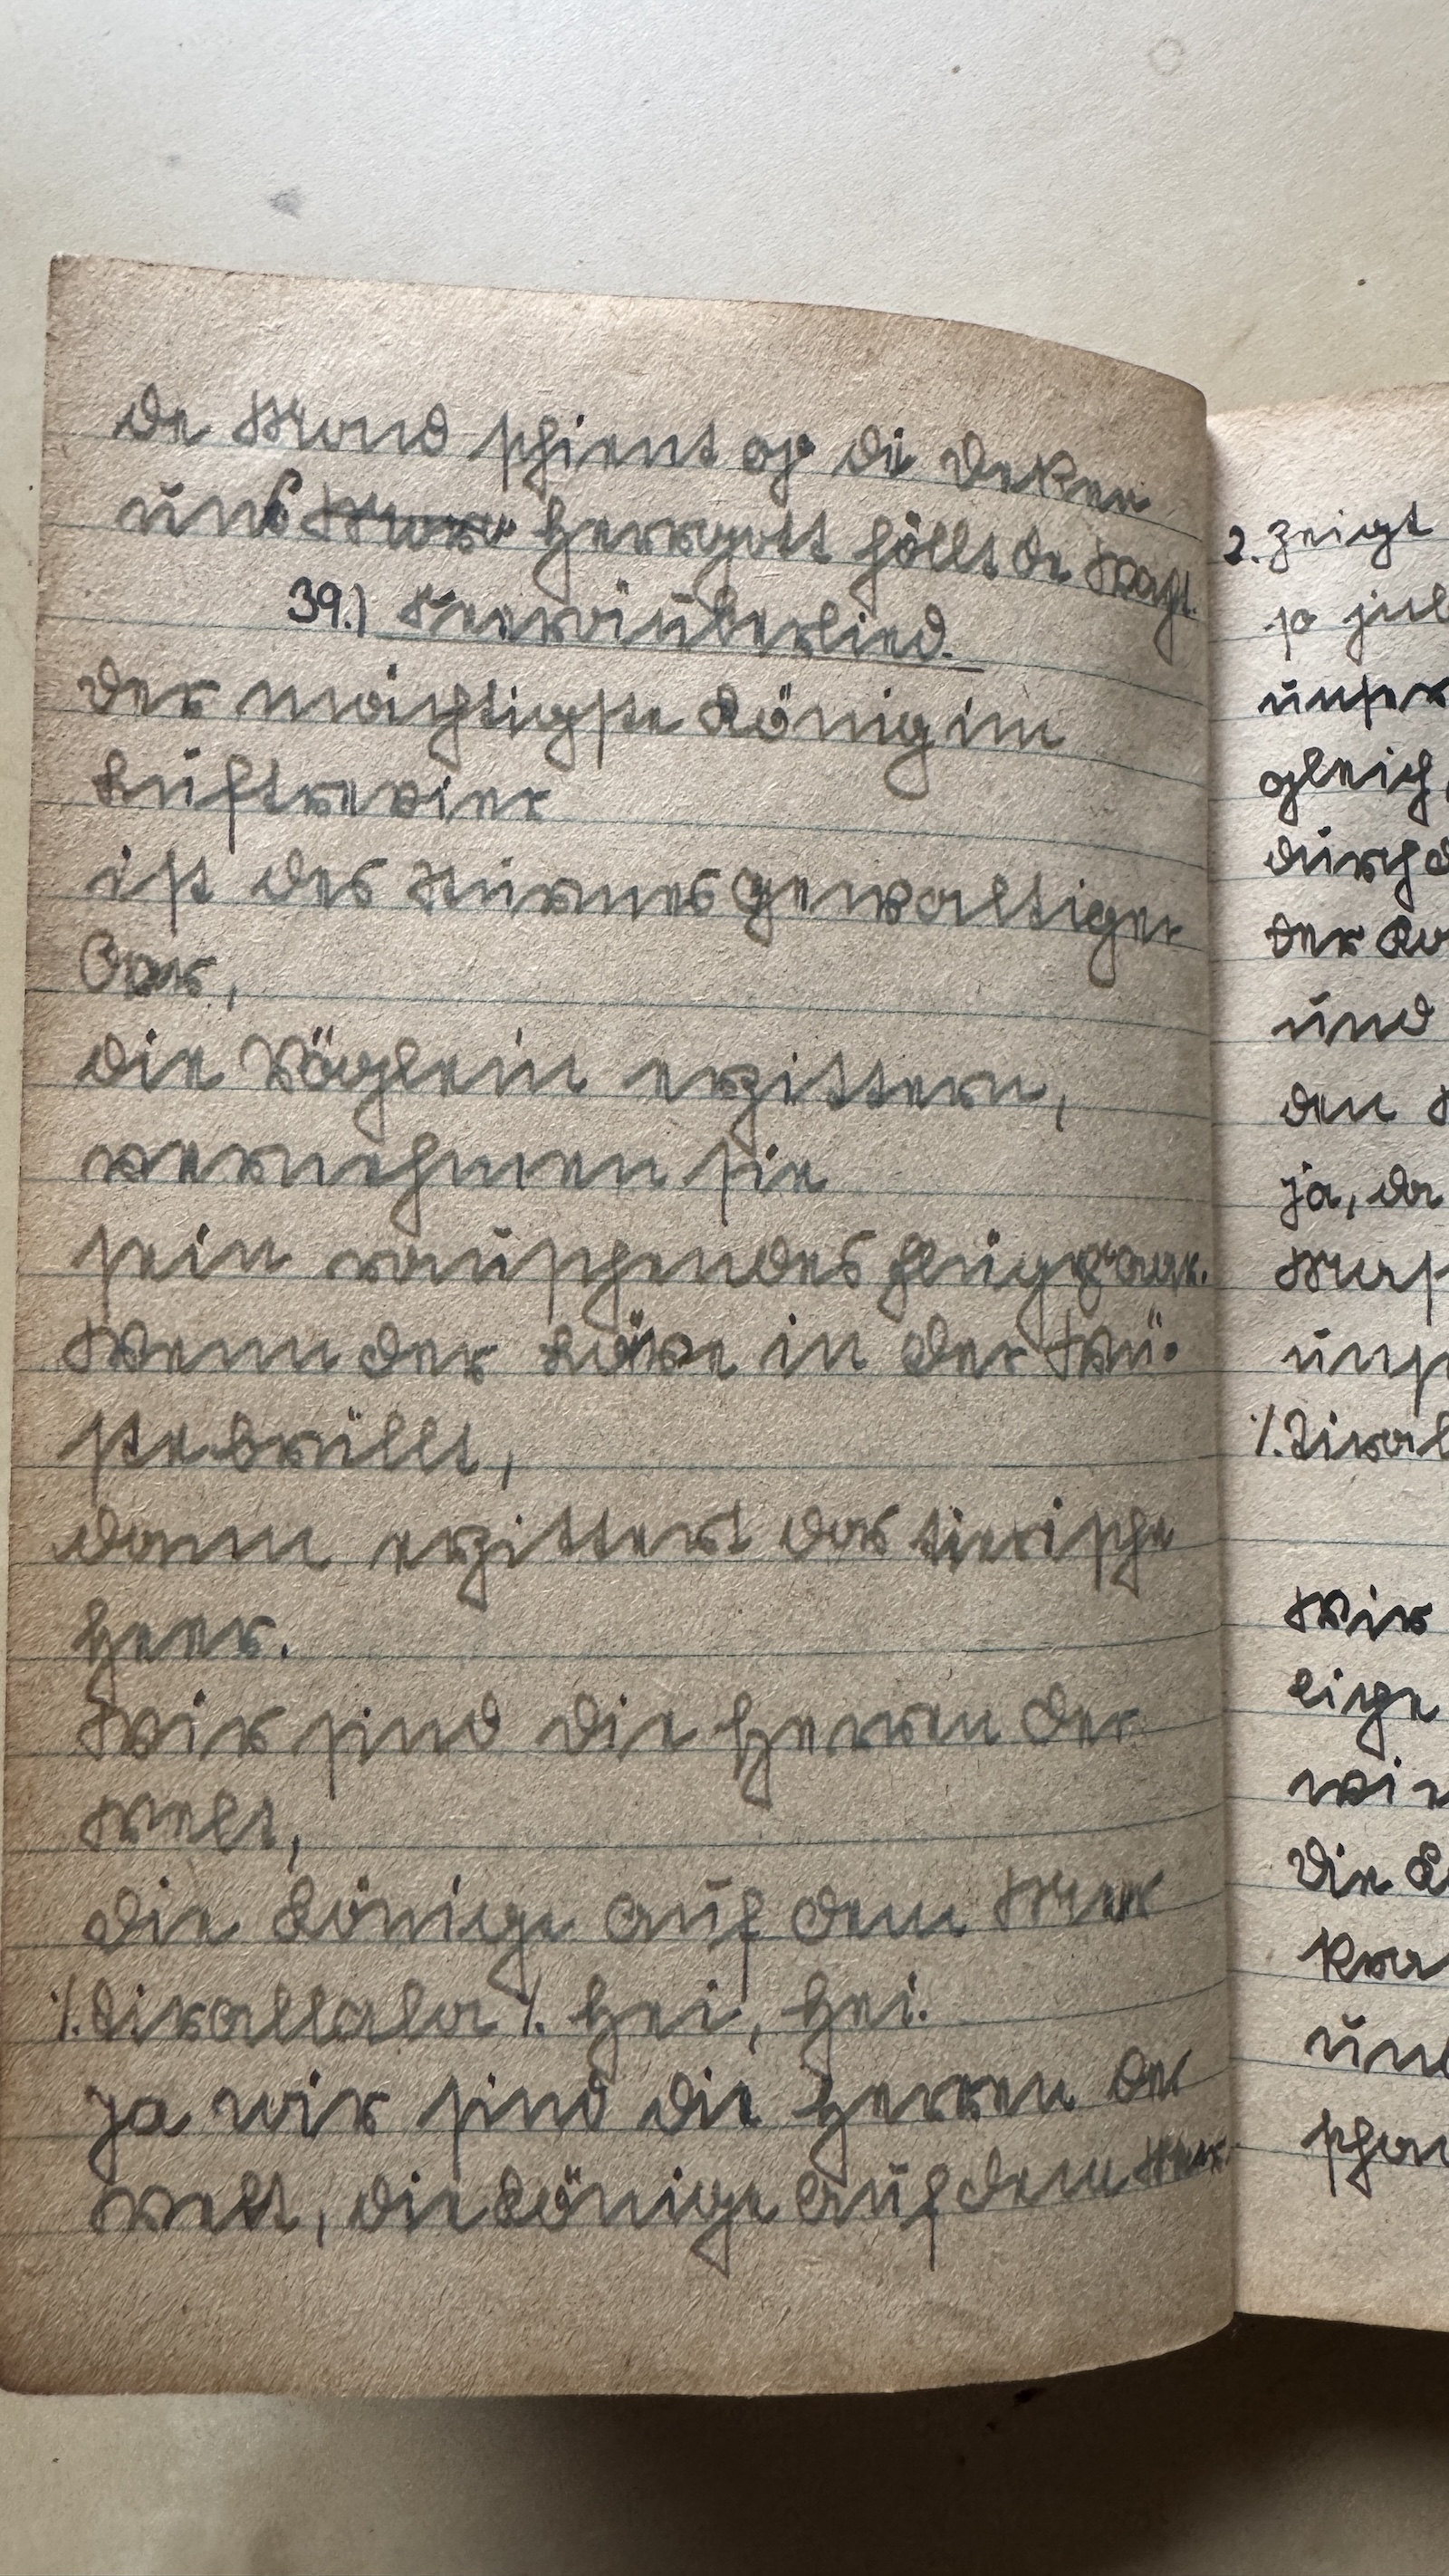 De Mond schient op di Deken
uns Herrgott höllt de Wagt.
39.) Seeräuberlied.
Der mächtigste König im
Luftrevier
ist des Sturmes gewaltiger
Aar,
die Vöglein erzittern,
vernehmen sie
sein rauschendes Flügelpaar.
Wenn der Löwe in der Wü-
ste brüllt,
dann erzittert das tierische
Heer.
Wir sind die Herren der
Welt,
die Könige auf dem Meer
·/. Tirallala ·/. Hei, Hei.
Ja wir sind die Herren der
Welt, die Könige auf dem Meer.
2. Zeigt
so
unser
gleich,
durch
der
und
den
ja, da
unse
·/. Tiral
Wir
liege
wi
Die